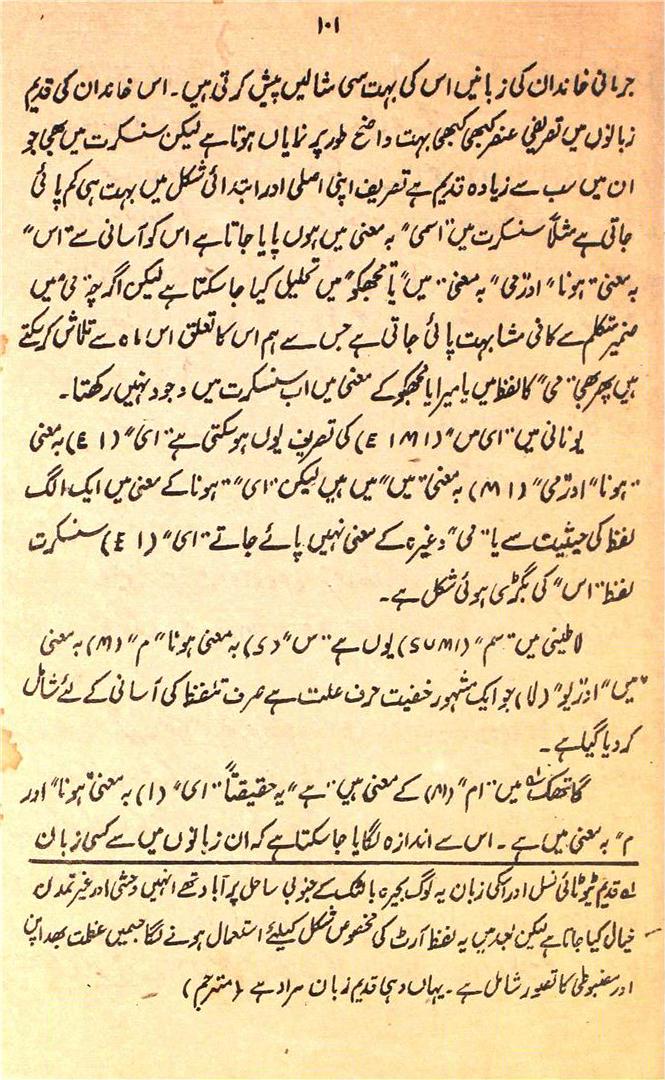 ۱۰۱
جرمانی خاندان کی زبانیں اس کی بہت سی مثالیں پیش کرتی ہیں۔ اس خاندان کی قدیم
زبانوں میں تعریفی عنصر کبھی کبھی بہت واضح طور پر نمایاں ہوتا ہے لیکن سنسکرت میں بھی جو
ان میں سب سے زیادہ قدیم ہے تعریف اپنی اصلی اور ابتدائی شکل میں بہت ہی کم پائی
جاتی ہے مثلاً سنسکرت میں "اسمی" بہ معنی میں ہوں پایا جاتا ہے اس کو آسانی سے "اس"
بہ معنی "ہونا" اور "می" بہ معنی "میں" یا "مجھکو" میں تحلیل کیا جا سکتا ہے لیکن اگرچہ "می" میں
ضمیر متکلم سے کافی مشابہت پائی جاتی ہے جس سے ہم اس کا تعلق اس مادہ سے تلاش کر سکتے
ہیں پھر بھی "می" کا لفظ میں یا میرا یا مجھکو کے معنی میں اب سنسکرت میں وجود نہیں رکھتا۔
یونانی میں "ای می" (EIMI) کی تعریف یوں ہو سکتی ہے "ای" (EI) بہ معنی
"ہونا" اور "می" (MI) بہ معنی "میں" میں ہیں لیکن "ای" "ہونا کے معنی میں ایک الگ
لفظ کی حیثیت سے یا "می" وغیرہ کے معنی نہیں پائے جاتے "ای" (EI) سنسکرت
لفظ "اس" کی بگڑی ہوئی شکل ہے۔
لاطینی میں "سم" (SUMI) یوں ہے "س" (S) بہ معنی ہونا "م" (M) بہ معنی
"میں" اور "یو" (U) جو ایک مشہور خفیف حرف علت ہے صرف تلفظ کی آسانی کے لئے شامل
کر دیا گیا ہے۔
گاتھک لہ میں "ام" (IM) کے معنی ہیں "ہے" یہ حقیقتاً "ای" (I) بہ معنی "ہونا" اور
م" بہ معنی میں ہے۔ اس سے اندازہ لگایا جا سکتا ہے کہ ان زبانوں میں سے کسی زبان
لہ قدیم ٹیوٹانی نسل اور اسکی زبان یہ لوگ بحیرہ بالٹک کے جنوبی ساحل پر آباد تھے انہیں وحشی اور غیر متمدن
خیال کیا جاتا ہے لیکن بعد میں یہ لفظ آرٹ کی مخصوص شکل کیلئے استعمال ہونے لگا جسمیں عظمت بھدا پن
اور مضبوطی کا تصور شامل ہے۔ یہاں وہی قدیم زبان مراد ہے (مترجم)